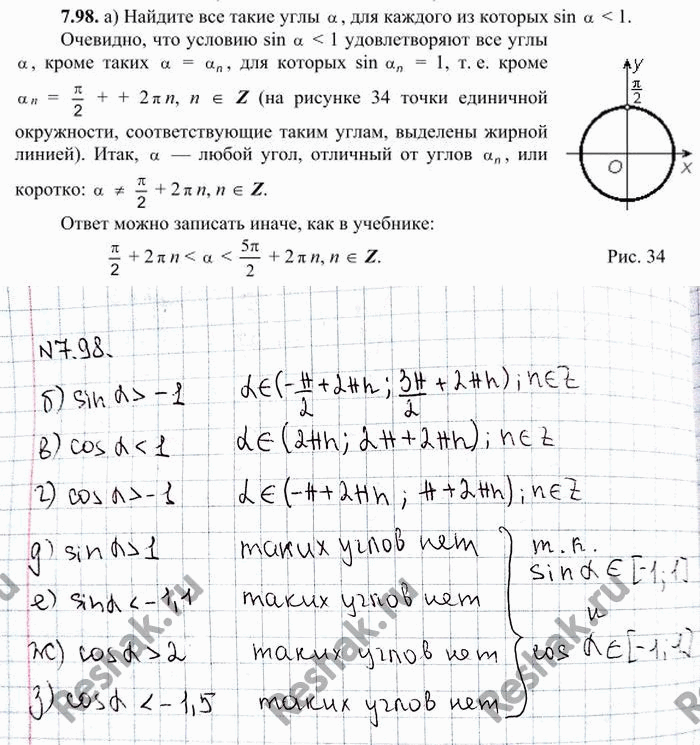 7.98. а) Найдите все такие углы α, для каждого из которых sin α < 1.
Очевидно, что условию sin α < 1 удовлетворяют все углы
α, кроме таких α = αₙ, для которых sin αₙ = 1, т. е. кроме
αₙ = π/2 + + 2πn, n ∈ Z (на рисунке 34 точки единичной
окружности, соответствующие таким углам, выделены жирной
линией). Итак, α — любой угол, отличный от углов αₙ, или
коротко: α ≠ π/2 + 2πn, n ∈ Z.
y
π/2
O
x
Ответ можно записать иначе, как в учебнике:
π/2 + 2πn < α < 5π/2 + 2πn, n ∈ Z.
Рис. 34
N7.98.
б) sin α > -1 α ∈ (-π/2 + 2πn; 3π/2 + 2πn); n ∈ Z
в) cos α < 1 α ∈ (2πn; 2π + 2πn); n ∈ Z
г) cos α > -1 α ∈ (-π + 2πn; π + 2πn); n ∈ Z
д) sin α > 1 таких углов нет
е) sin α < -1,1 таких углов нет
ж) cos α > 2 таких углов нет
з) cos α < -1,5 таких углов нет
т.к.
sin α ∈ [-1;1]
и
cos α ∈ [-1;1]
Reshak.ru
Reshak.ru
Reshak.ru